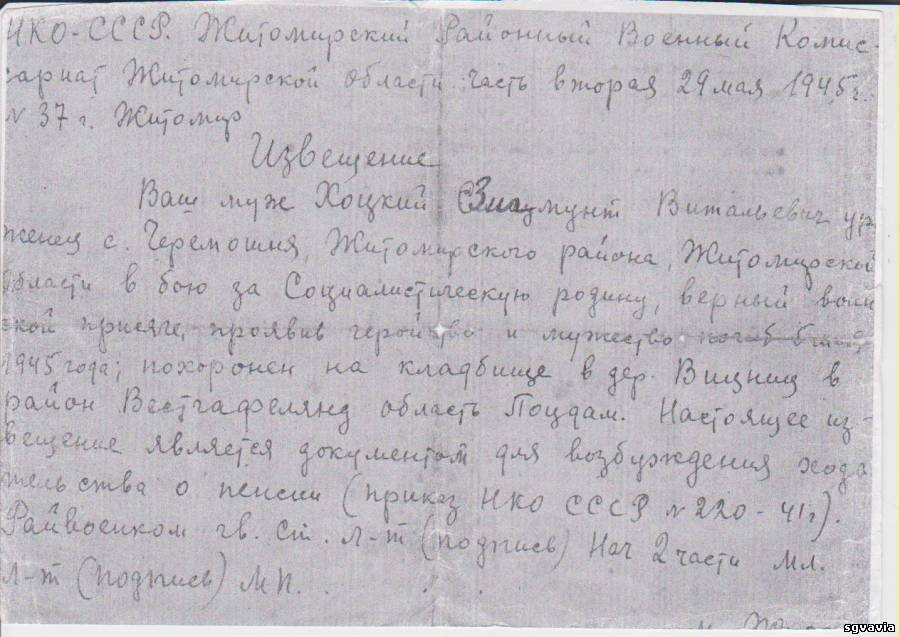 НКО-СССР. Житомирский Районный Военный Комис-
сариат Житомирской области часть вторая 29 мая 1945г.
N 37 г. Житомир
Извещение
Ваш муж Хоцкий Зигмунт Витальевич уро
женец с. Черемошня, Житомирского района, Житомирской
области в бою за Социалистическую родину, верный воин
ской присяге, проявив геройство и мужество погиб
1945 года; похоронен на кладбище в дер. Вицниц в
район Вестгафелянд область Поцдам. Настоящее из-
вещение является документом для возбуждения хода
тельства о пенсии (приказ НКО СССР N 220-41г).
Райвоенком гв. ст. л-т (подпись) Нач 2 части мл.
л-т (подпись) МП.
sgvavia